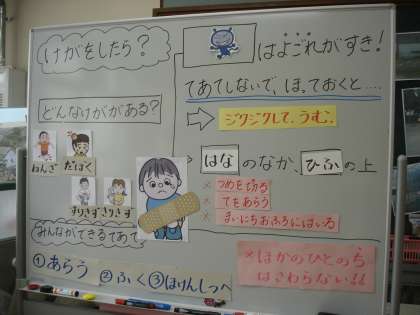 けがをしたら？
どんなけががある？
ねんざ
だぼく
すりきず
きりきず
みんなができるてあて
①あらう
②ふく
③ほけんしつへ
はよごれがすき！
てあてしないで、ほっておくと……
ジクジクして、うむ。
はなのなか、ひふの上
×つめを切る
×てをあらう
×まいにちおふろにはいる
×ほかのひとのち
はさわらない!!